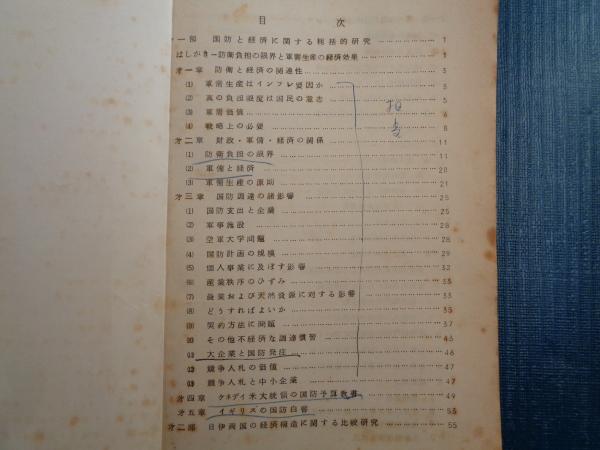 目次
才一部 国防と経済に関する総括的研究 1
はしがき―防衛負担の限界と軍需生産の経済効果 1
才一章 防衛と経済の関連性 3
(1) 軍需生産はインフレ要因か 3
(2) 真の負担限度は国民の意志 5
(3) 軍需価値 6
(4) 戦略上の必要 8
才二章 財政・軍備・経済の関係 11
(1) 防衛負担の限界 11
(2) 軍備と経済 20
(3) 軍需生産の原則 21
才三章 国防調達の諸影響 25
(1) 国防支出と企業 25
(2) 軍事施設 28
(3) 空軍大学問題 28
(4) 国防計画の規模 29
(5) 個人事業に及ぼす影響 32
(6) 産業秩序のひずみ 33
(7) 農業および天然資源に対する影響 33
(8) どうすればよいか 35
(9) 契約方法に問題 37
その他不経済な調達慣習 45
大企業と国防発注 46
競争入札の価値 47
競争入札と中小企業 48
才四章 ケネディ米大統領の国防予算教書 49
才五章 イギリスの国防白書 53
才二部 日伊両国の経済構造に関する比較研究 55